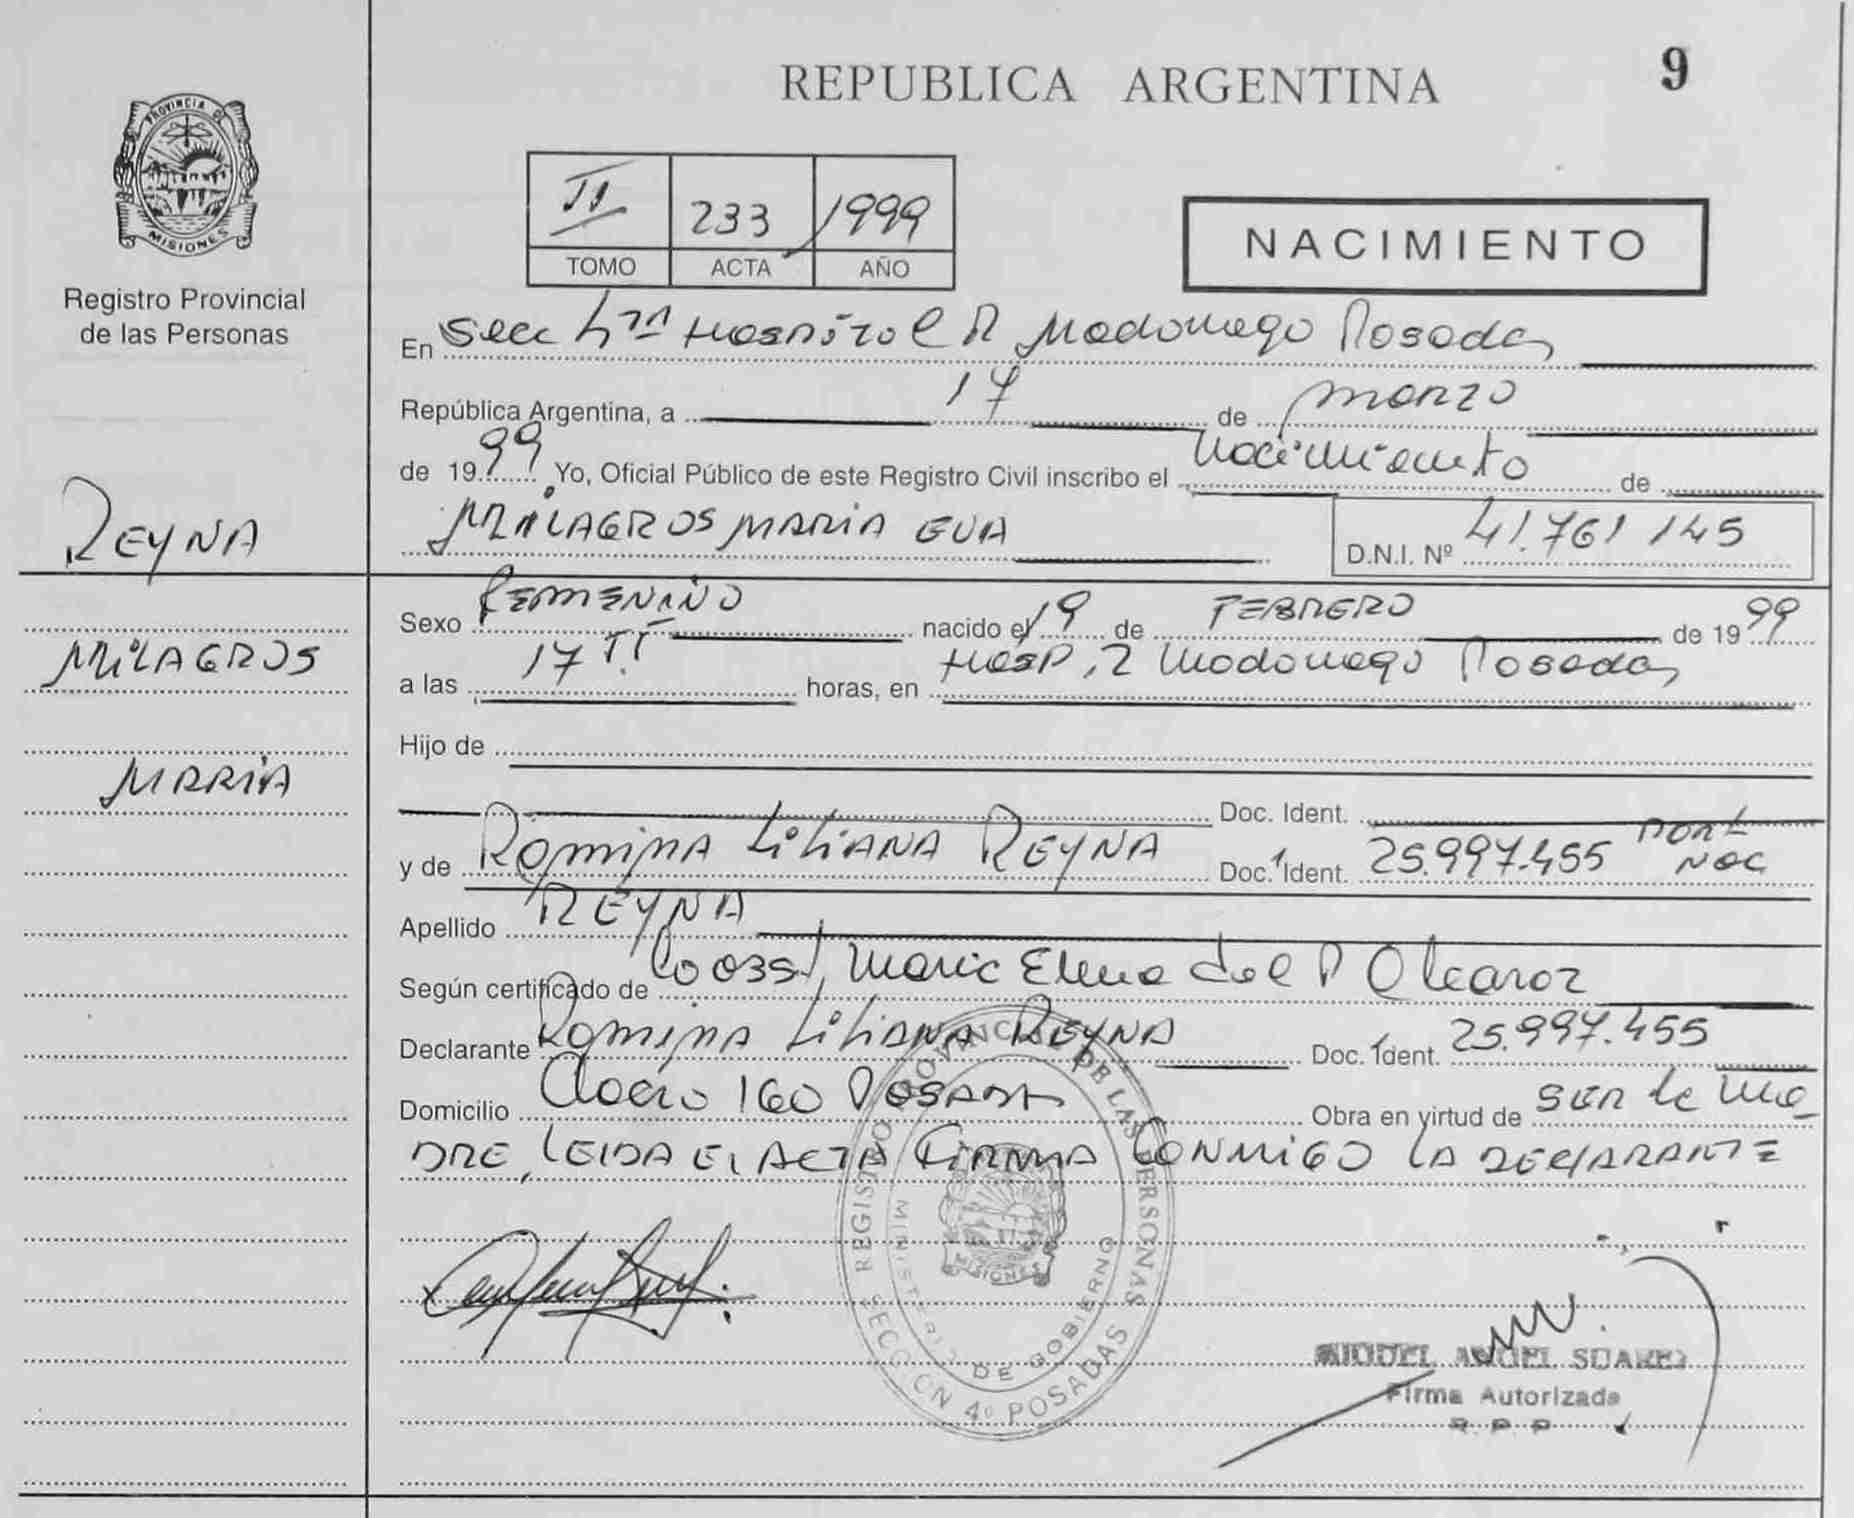 REPUBLICA ARGENTINA
9
PROVINCIA DE
MISIONES
Registro Provincial
de las Personas
II 233 1999
TOMO ACTA AÑO
NACIMIENTO
En Secc 4ta Hospital R Madariaga Posadas
República Argentina, a 17 de marzo
de 1999 Yo, Oficial Público de este Registro Civil inscribo el Nacimiento de
REYNA
MILAGROS MARIA EVA
D.N.I. Nº 41.761 145
Sexo FEMENINO nacido el 19 de FEBRERO de 1999
MILAGROS
a las 17 horas, en Hosp. R Madariaga Posadas
Hijo de
MARIA
Doc. Ident.
y de ROMINA LILIANA REYNA Doc. Ident. 25.997.455
Apellido REYNA
Según certificado de Maria Elena del Alcaraz
Declarante ROMINA LILIANA REYNA Doc. Ident. 25.997.455
Domicilio 160 POSADAS Obra en virtud de SER la Ma
DRE, LEIDA EL ACTA FIRMA CONMIGO LA DECLARANTE
REGISTRO PROVINCIAL DE LAS PERSONAS
MINISTERIO DE GOBIERNO
MISIONES
SECCION 4º POSADAS
MIGUEL ANGEL SUAREZ
Firma Autorizada
R. P. P.